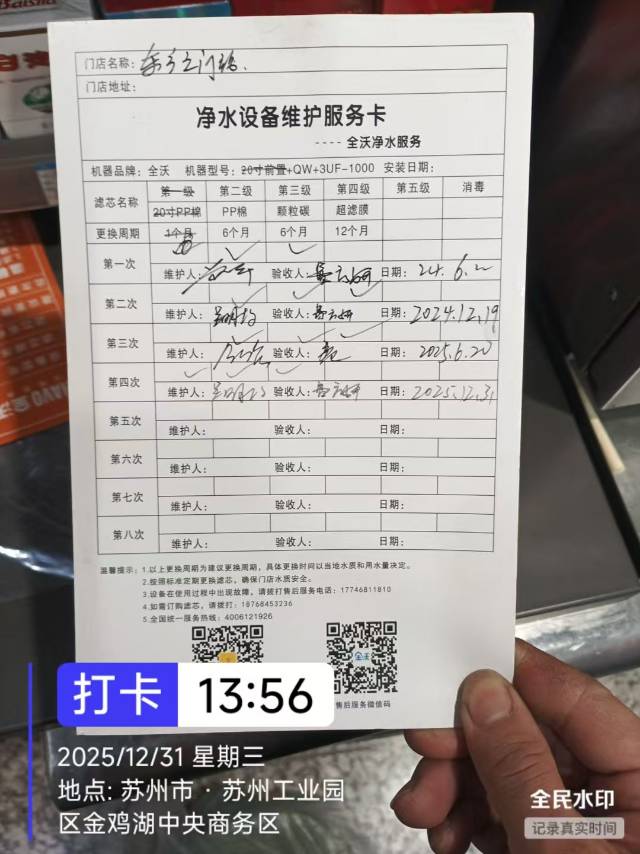 门店名称:
门店地址:
净水设备维护服务卡
---- 全沃净水服务
机器品牌: 全沃 机器型号: 20寸前置+QW+3UF-1000 安装日期:
滤芯名称 第一级 第二级 第三级 第四级 第五级 消毒
20寸PP棉 PP棉 颗粒碳 超滤膜
更换周期 1个月 6个月 6个月 12个月
第一次 维护人: 验收人: 日期: 24.6.2
第二次 维护人: 验收人: 日期: 2024.12.19
第三次 维护人: 验收人: 日期: 2025.6.20
第四次 维护人: 验收人: 日期: 2025.12.31
第五次 维护人: 验收人: 日期:
第六次 维护人: 验收人: 日期:
第七次 维护人: 验收人: 日期:
第八次 维护人: 验收人: 日期:
温馨提示: 1.以上更换周期为建议更换周期，具体更换时间以当地水质和用水量决定。
2.按照标准定期更换滤芯，确保门店水质安全。
3.设备在使用过程中出现故障，请拨打售后服务电话: 17746811810
4.如需订购滤芯，请拨打: 18768453236
5.全国统一服务热线: 4006121926
全沃
售后服务微信码
打卡 13:56
2025/12/31 星期三
地点: 苏州市 · 苏州工业园
区金鸡湖中央商务区
全民水印
记录真实时间